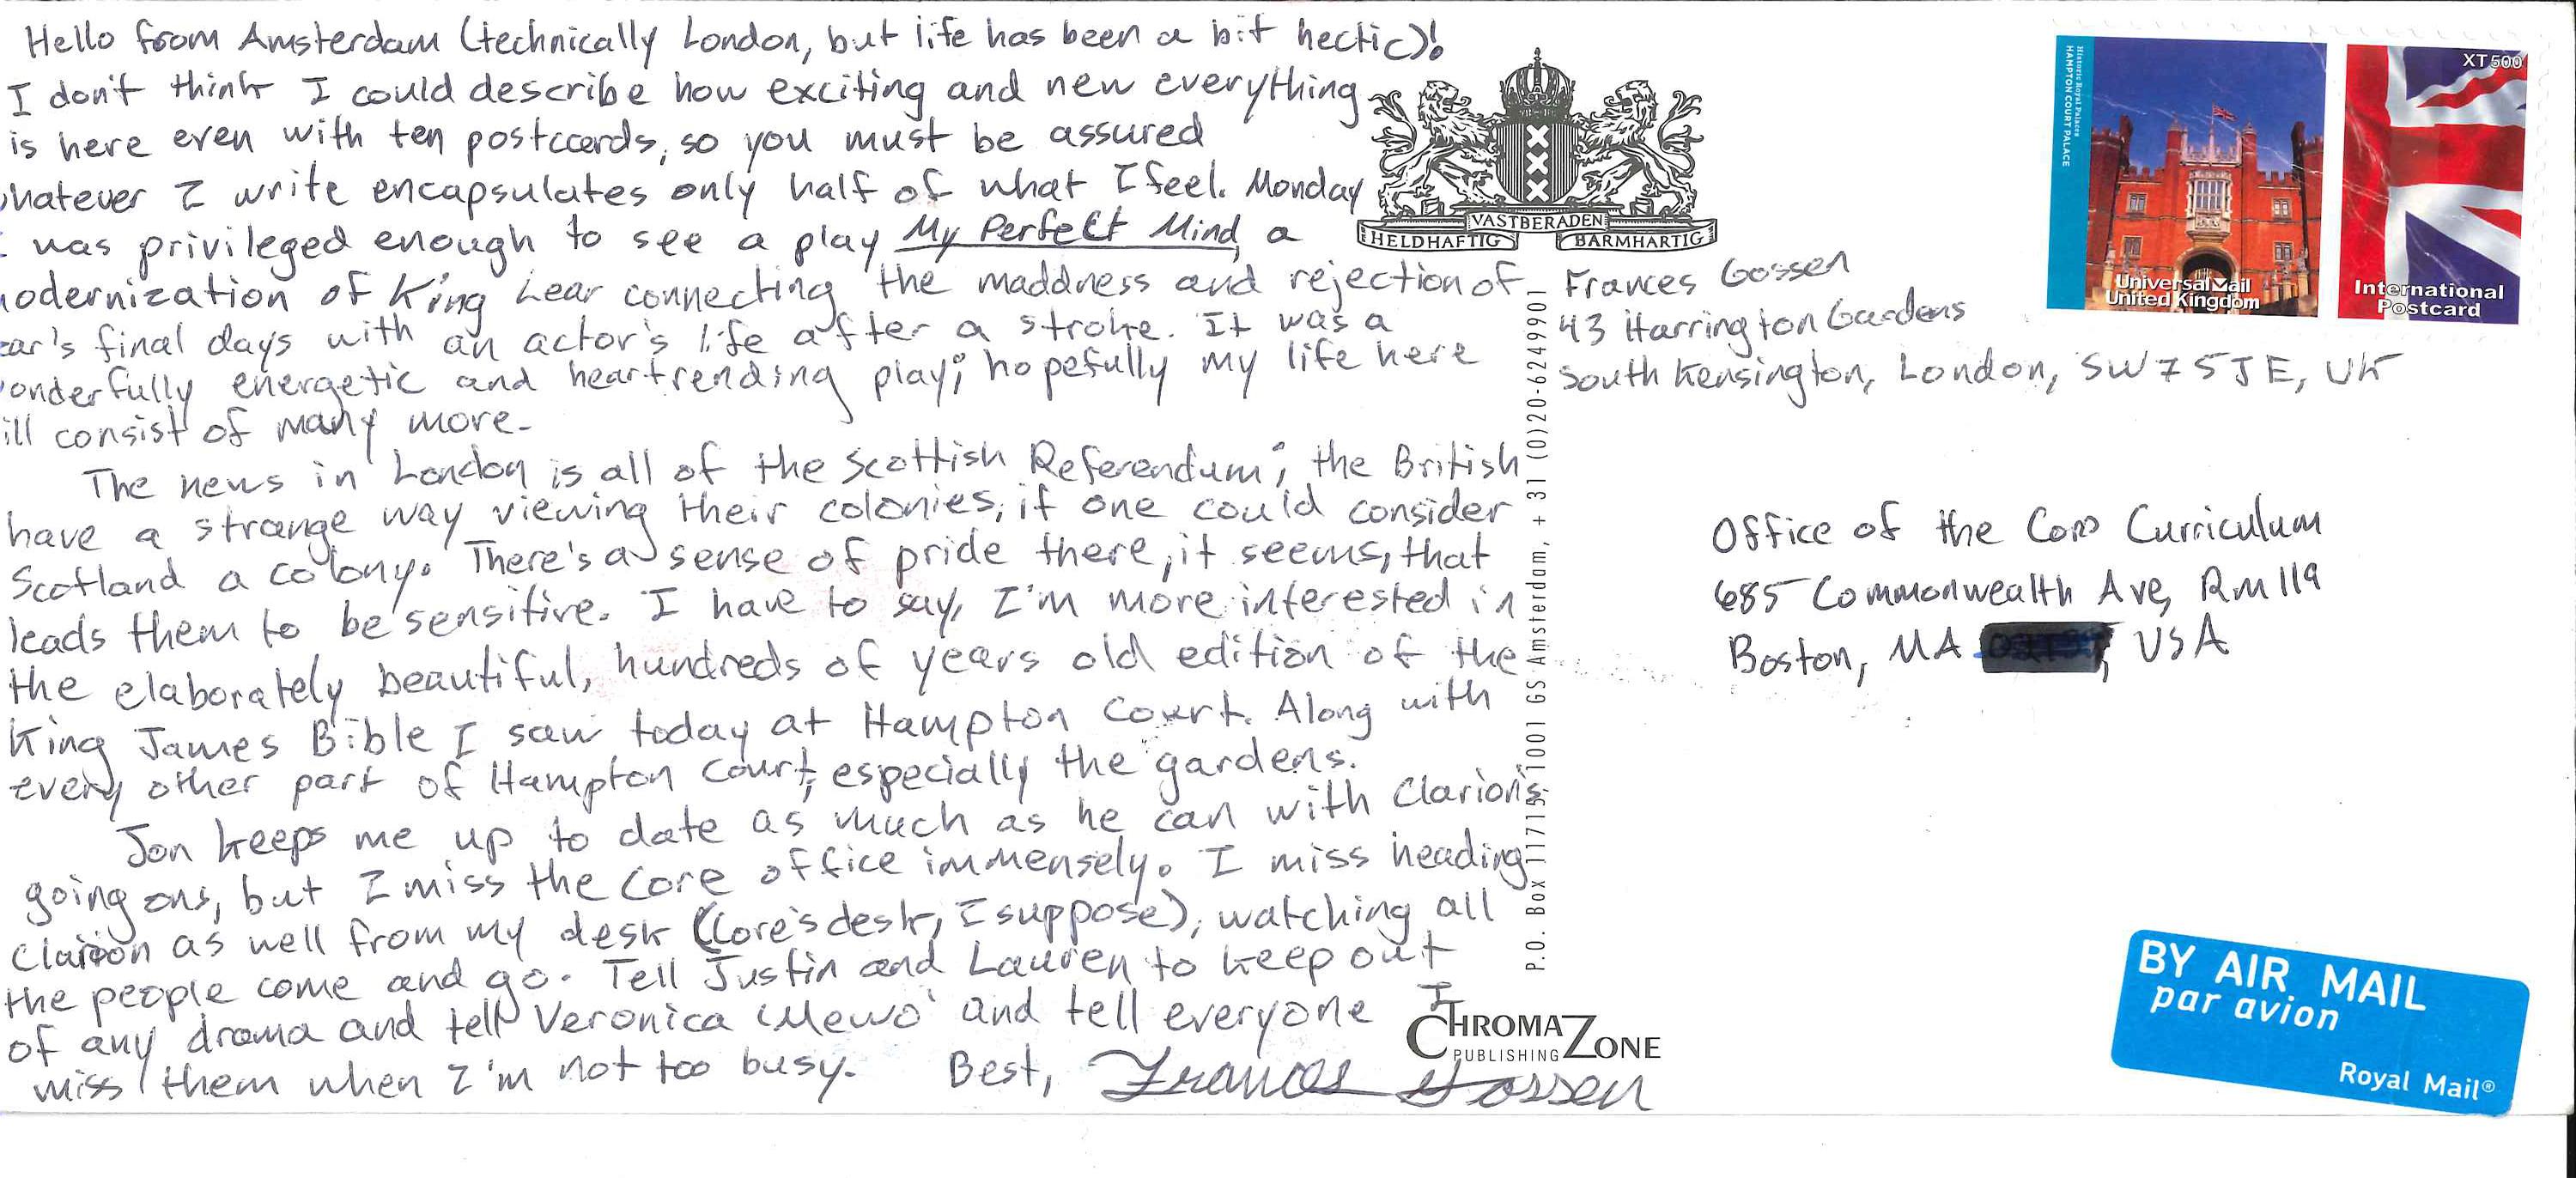 Hello from Amsterdam (technically London, but life has been a bit hectic)!
I don't think I could describe how exciting and new everything
is here even with ten postcards, so you must be assured
whatever I write encapsulates only half of what I feel. Monday
I was privileged enough to see a play My Perfect Mind, a
modernization of King Lear connecting the maddness and rejection of
ear's final days with an actor's life after a stroke. It was a
onderfully energetic and heartrending play; hopefully my life here
ill consist of many more.
The news in London is all of the Scottish Referendum; the British
have a strange way viewing their colonies, if one could consider
Scotland a colony. There's a sense of pride there, it seems, that
leads them to be sensitive. I have to say, I'm more interested in
the elaborately beautiful, hundreds of years old edition of the
King James Bible I saw today at Hampton Court. Along with
every other part of Hampton Court, especially the gardens.
Jon keeps me up to date as much as he can with Clarion's
going ons, but I miss the Core office immensely. I miss heading
Clarion as well from my desk (Core's desk, I suppose), watching all
the people come and go. Tell Justin and Lauren to keep out
of any drama and tell Veronica 'Mewo' and tell everyone I
miss them when I'm not too busy. Best, Frances Gossen
HELDHAFTIG VASTBERADEN BARMHARTIG
P.O. Box 11715, 1001 GS Amsterdam, + 31 (0)20-6249901
CHROMAZONE
PUBLISHING
Historic Royal Palaces
HAMPTON COURT PALACE
Universal Mail
United Kingdom
XT500
International
Postcard
Frances Gossen
43 Harrington Gardens
South Kensington, London, SW7 5JE, UK
Office of the Core Curriculum
685 Commonwealth Ave, Rm 119
Boston, MA , USA
BY AIR MAIL
par avion
Royal Mail®